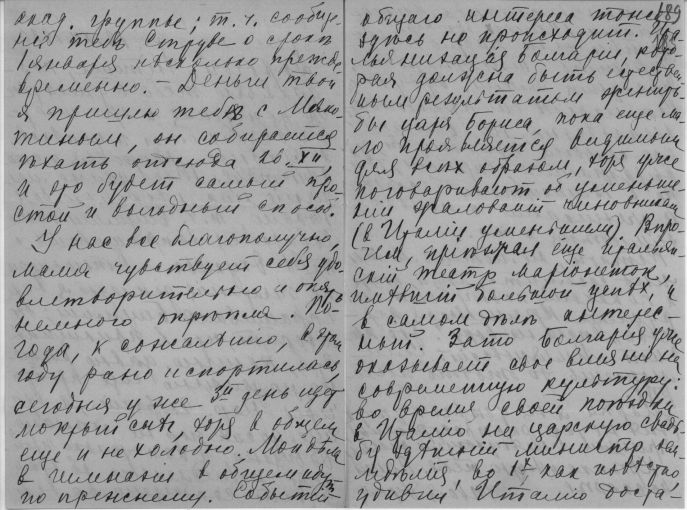 акад. группѣ; т. ч. сообще-
ніе тебѣ Струве о срокѣ
1 января нѣсколько прежде-
временно. – Деньги твои
я пришлю тебѣ с
он собирается
ѣхать отсюда 26.XII,
и это будет самый про-
стой и выгодный способ.
У нас все благополучно,
мама чувствует себя удо-
влетворительно и опять
немного окрѣпла. По-
года, к сожалѣнію, в этом
году рано испортилась,
сегодня уже 3й день идет
мокрый снѣг, хотя в общем
еще и не холодно. Мои дѣла
в гимназіи в общем идут
по прежнему. Событій
189
общаго интереса тоже
здѣсь не происходит. Ита-
льянизація Болгаріи, кото-
рая должна быть естествен-
ным результатом женить-
бы царя Бориса, пока еще ма-
ло проявляется видимым
для всѣх образом, хотя уже
поговаривают об уменьше-
нии жалованій чиновникам
(в Италіи уменьшили). Впро-
чем, пріѣзжал еще итальян-
скій театр маріонеток,
имѣвшій большой успѣх, и
в самом дѣлѣ интерес-
ный. Зато Болгарія уже
оказывает свое вліяніе на
современную культуру:
во время своей поѣздки
в Италію на царскую свадь-
бу здѣшній министр
во 1х, как извѣстно,
удивил Италію доста-